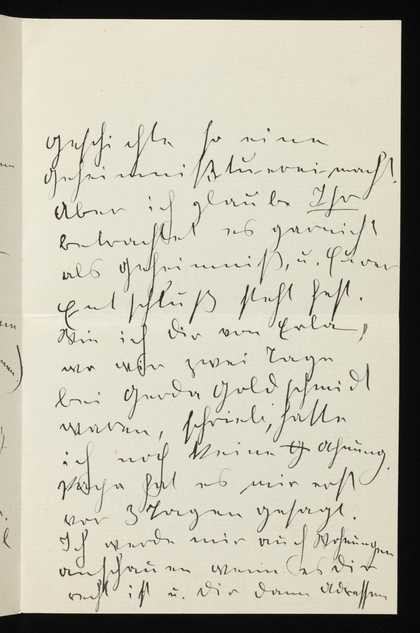 geschichte so eine
Geheimnißtuerei macht.
Aber ich glaube Ihr
betrachtet es garnicht
als Geheimniß, u. Euer
Entschluß steht fest.
Wie ich Dir von Erla,
wo wir zwei Tage
bei Gerda Goldschmidt
waren, schrieb, hatte
ich noch keine Ahnung.
Papa hat es mir erst
vor 3 Tagen gesagt.
Ich werde mir auch Wohnungen
anschauen wenn es dir
recht ist u. dir dann Adressen